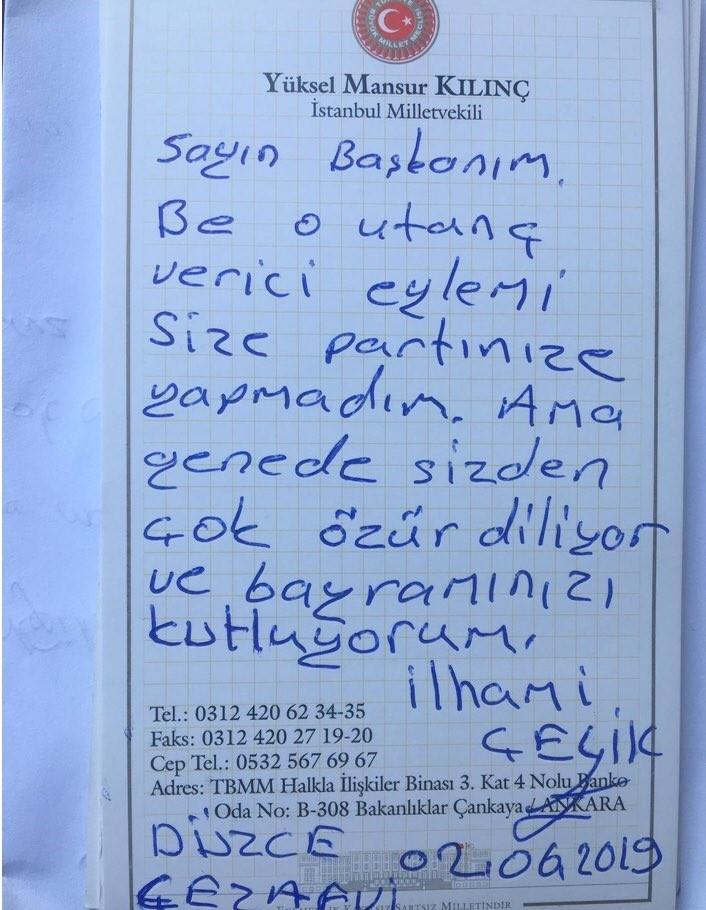 Yüksel Mansur KILINÇ
İstanbul Milletvekili
Sayın Başkanım.
Be o utanç
verici eylemi
Size partinize
yapmadım. Ama
genede sizden
çok özür diliyor
ve bayramınızı
kutluyorum.
ilhami
Tel.: 0312 420 62 34-35
Faks: 0312 420 27 19-20
Cep Tel.: 0532 567 69 67
Adres: TBMM Halkla İlişkiler Binası 3. Kat 4 Nolu Banko
Oda No: B-308 Bakanlıklar Çankaya / ANKARA
DÜZCE 02.06 2019
CEZAEVİ